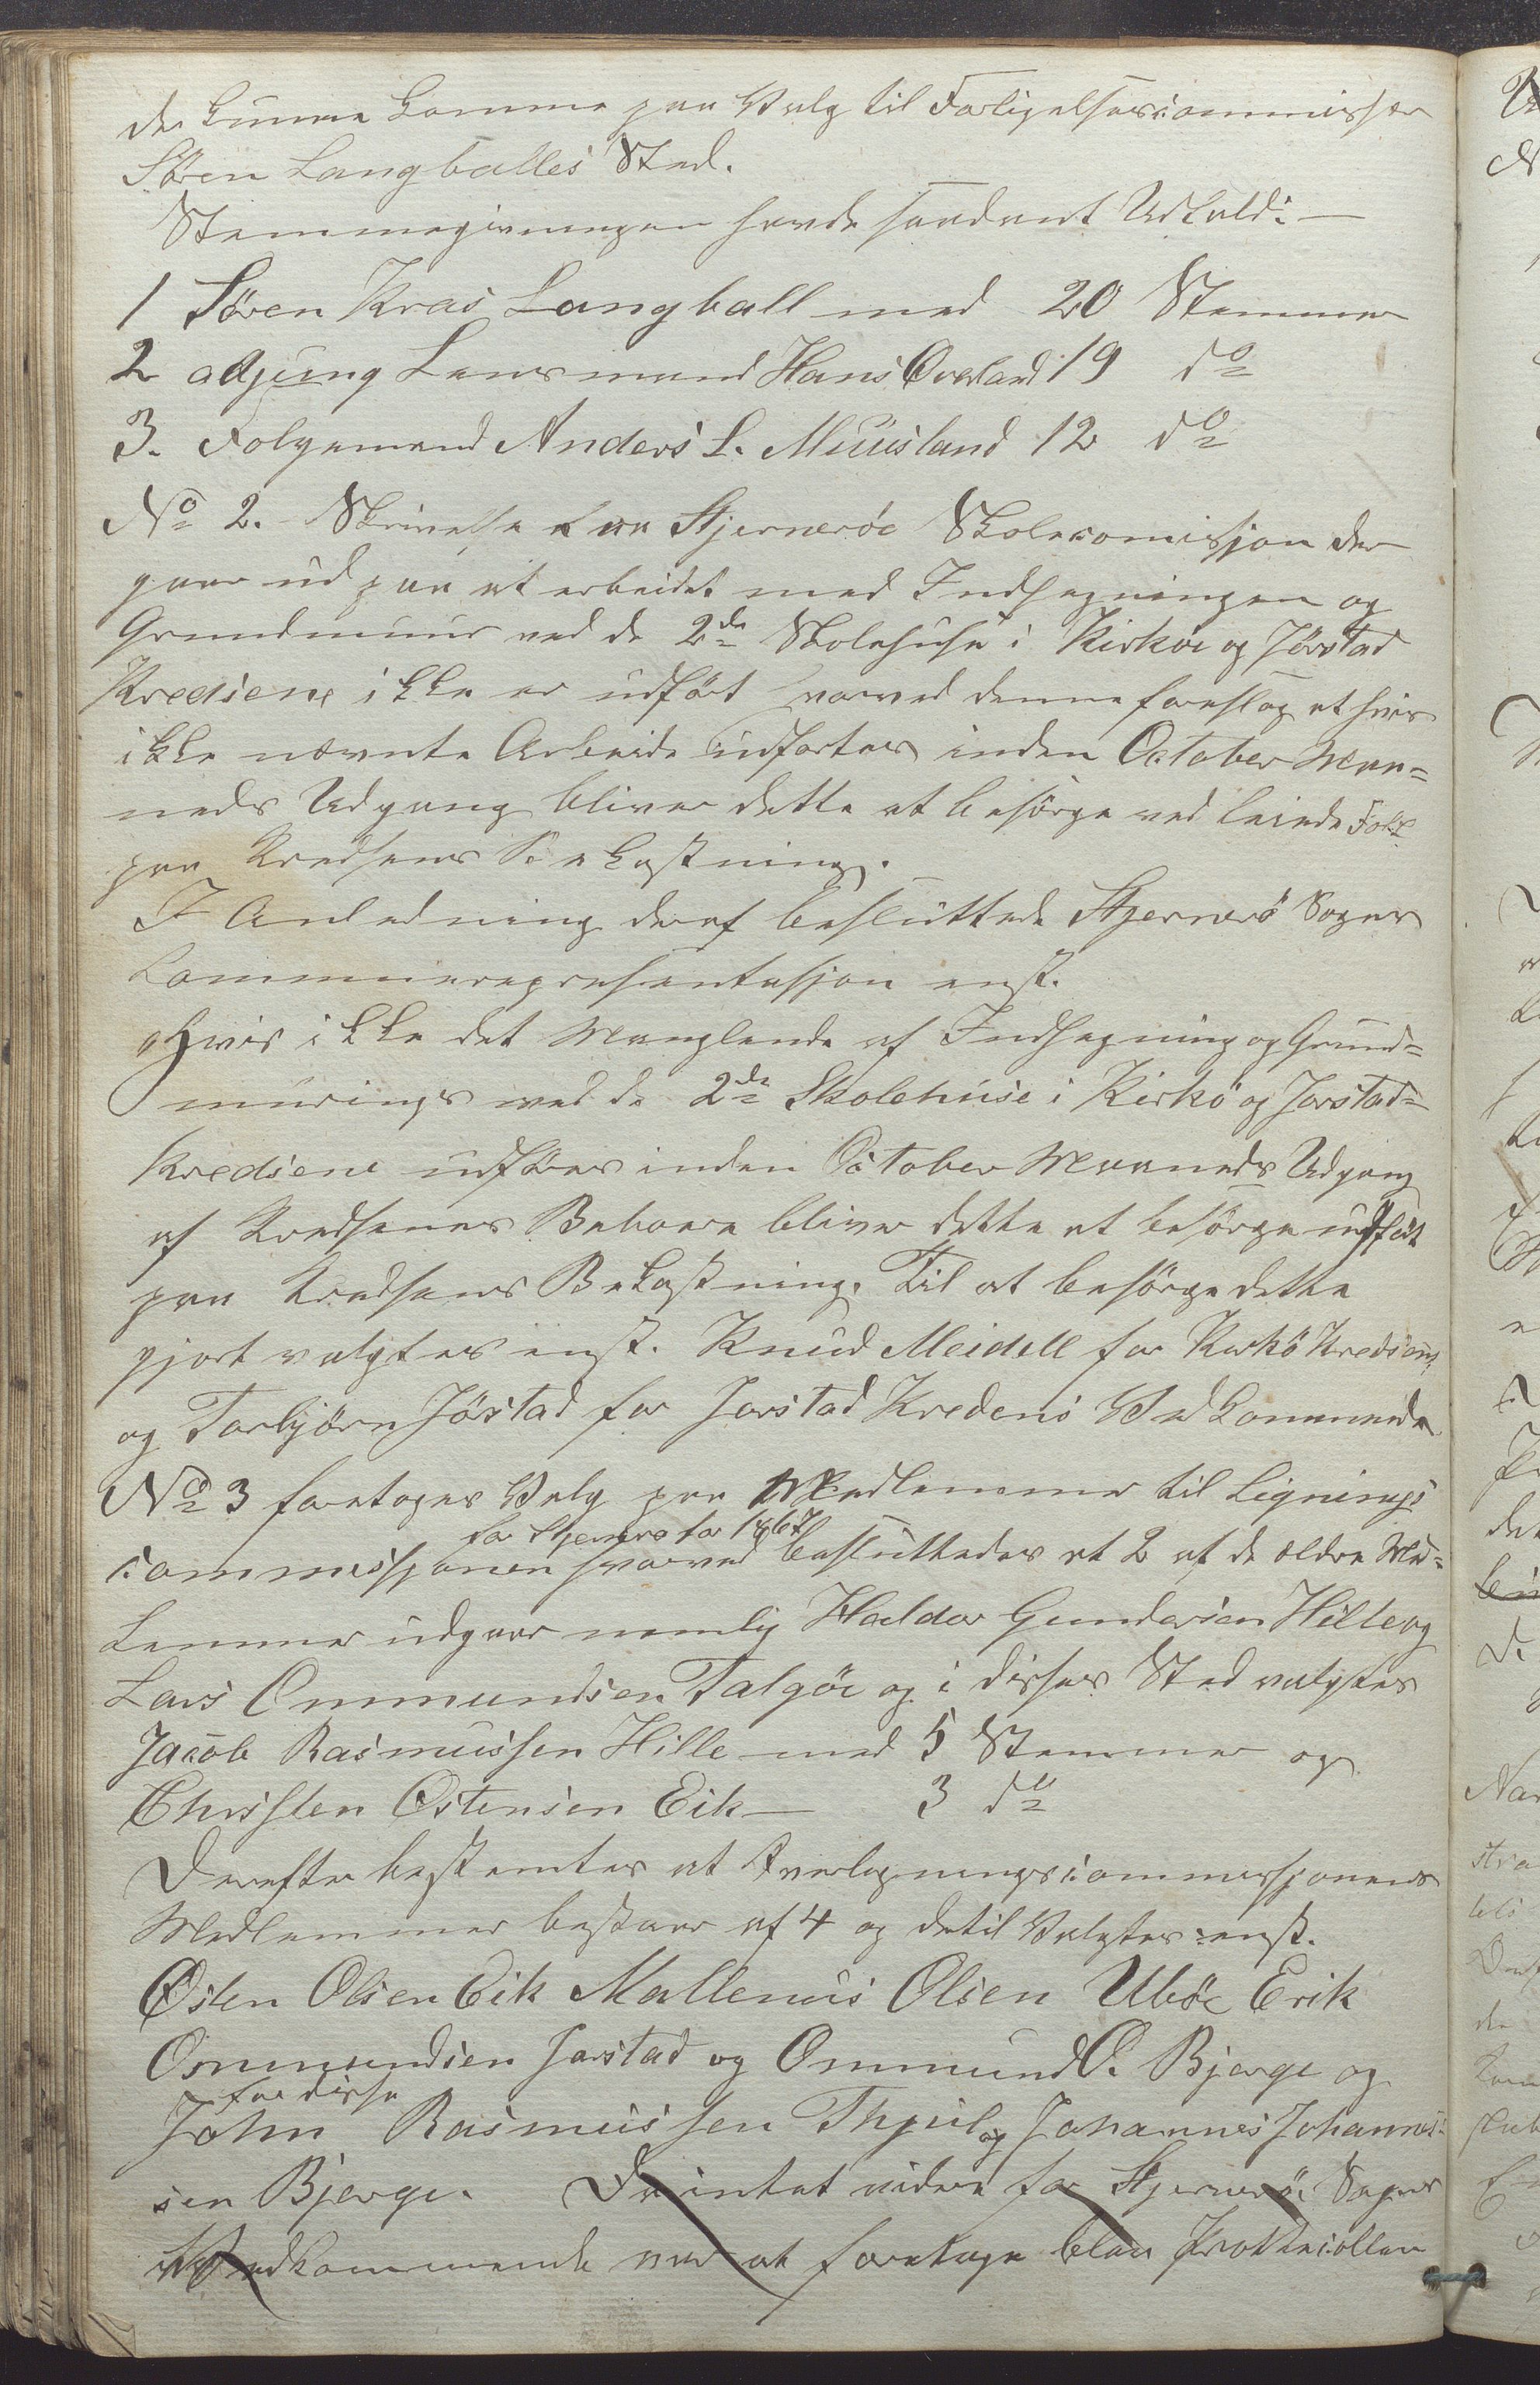 der kunne komme paa Valg til Forligelsescommissær
Søren Langballes Sted.
Stemmegivningen havde saadant Udfald: —
1 Søren Kras Langball med 20 Stemmer
2 adjung Lensmand Hans Overland 19 do
3. Folgemand Anders L. Muusland 12 do
No 2. Skrivelse fra Stjernerøe Skolecomissjon der
gaar ud paa at arbeidet med Indhegningen og
Grundmuur ved de 2de Skolehuse i Kirkøe og Jørstad
Kredsene ikke er udført hvorved denne foreslog at hvis
ikke nævnte Arbeide udfortes inden October Maa=
neds Udgang bliver dette at besørge ved leiede Folk
paa Kredsens Bekostning.
I Anledning deraf besluttede Stjernerø Sognes
Communerepresentasjon enst.
"Hvis ikke det Manglende af Indhegning og Grund=
murings ved de 2de Skolehuse i Kirkø og Jorstad=
Kredsene udføres inden October Maaneds Udgang
af Kredsenes Beboere bliver dette at besørge udført
paa Kredsens Bekostning. Til at besørge dette
gjort valgtes enst. Knud Meidell for Kirkø Kredsens
og Torbjørn Jöstad for Jorstad Kredens Vedkommende
No 3 foretoges Valg paa Medlemmer til Lignings
for Stjernerø for 1867
commissjonen hvorved besluttedes at 2 af de ældre Med=
lemmer udgaar nemlig Haldor Gundersen Hille og
Lars Ommundsen Talgöe og i disses Sted valgtes
Jacob Rasmussen Hille med 5 Stemmer og
Christen Østensen Eik — 3 do
Derefter bestemtes at Overlignings commissjonens
Medlemmer bestaar af 4 og dertil Valgtes enst.
Østen Olsen Eik Mallenius Olsen Uböe Erik
Ommundsen Jorstad og Ommund O. Bjerge og
for disse
John Rasmussen Thjul og Johannes Johannes=
sen Bjerge. Da intet videre for Stjernerøe Sognes
Vedkommende var at foretage blev Protocollen